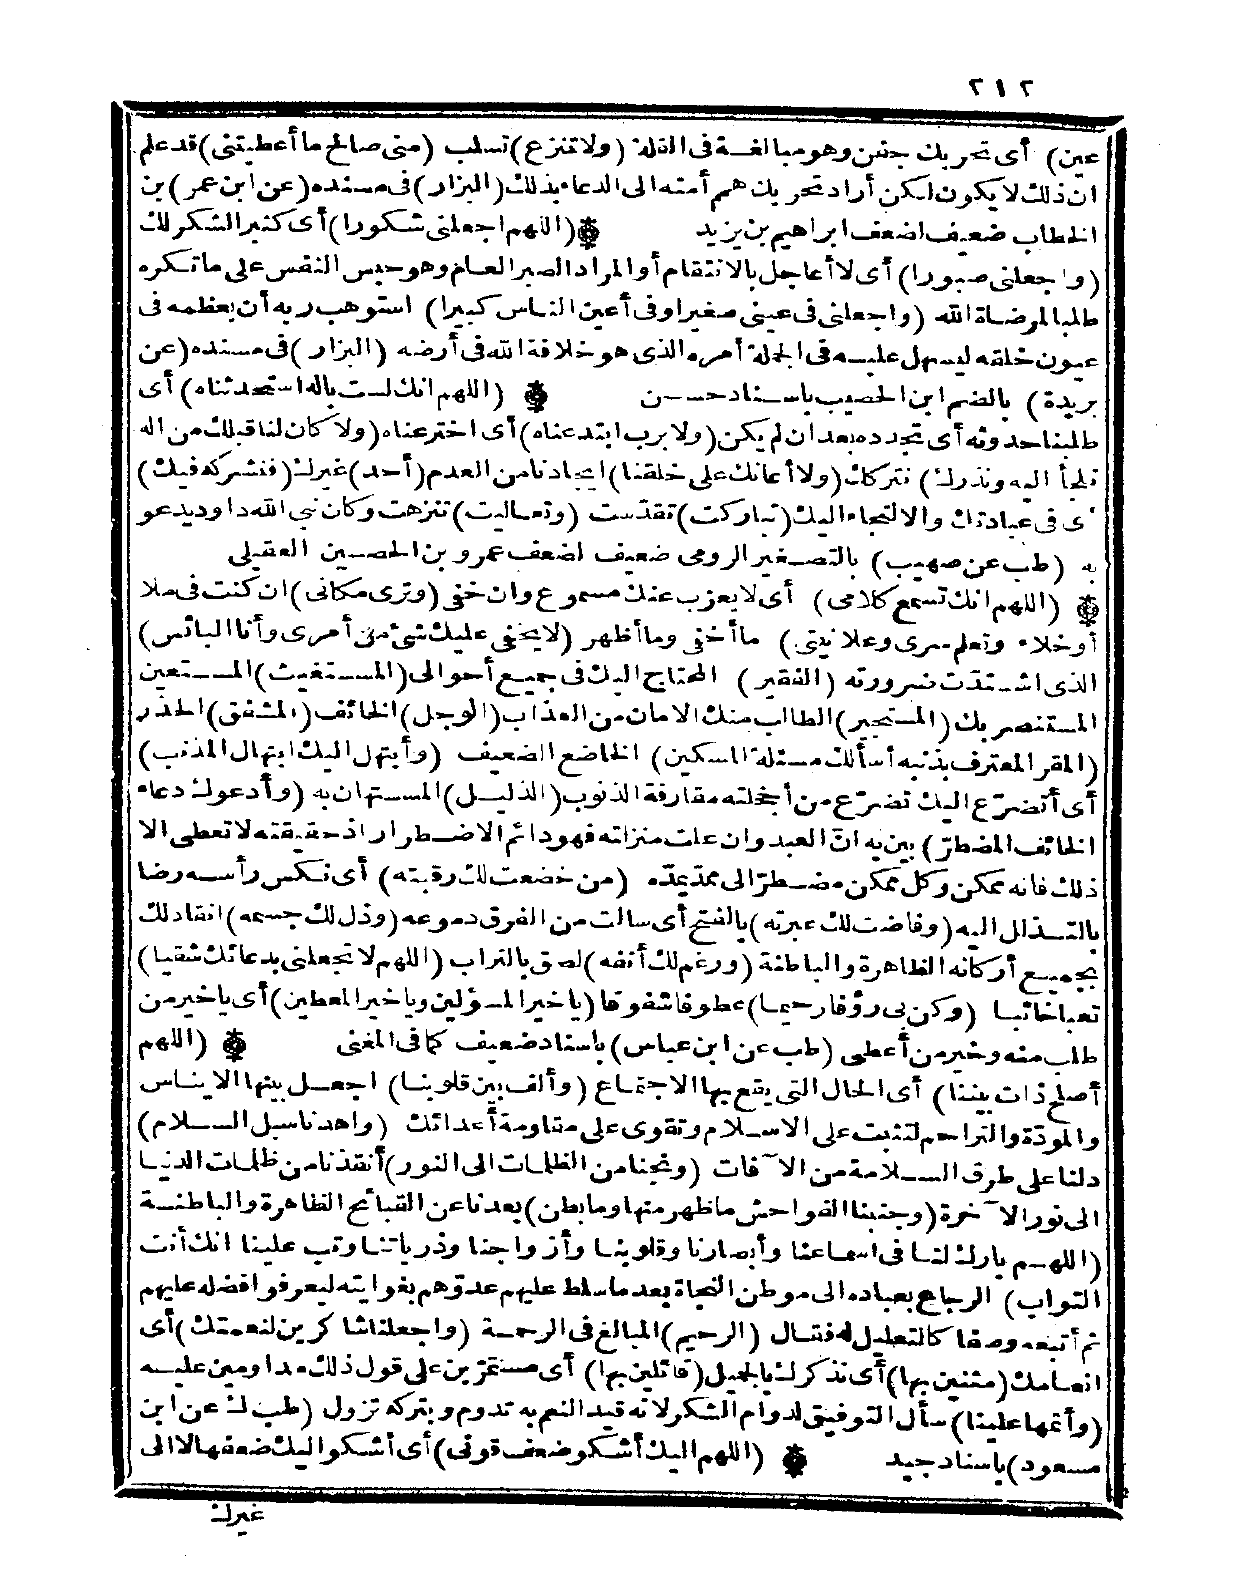 ٢١٢
عين) أى تحريك جفن وهو مبالغة فى القلة (ولا تنزع) تسلب (منى صالح ما أعطيتنى) قد علم
ان ذلك لا يكون لكن أراد تحريك هم أمته الى الدعاء بذلك (البزار) فى مسنده (عن ابن عمر) بن
الخطاب ضعيف لضعف ابراهيم بن يزيد (اللهم اجعلنى شكورا) أى كثير الشكر لك
(واجعلنى صبورا) أى لا أعاجل بالانتقام أو المراد الصبر العام وهو حبس النفس على ما تكره
طلبا لمرضاة الله (واجعلنى فى عينى صغيرا وفى أعين الناس كبيرا) استوهب ربه أن يعظمه فى
عيون خلقه ليسهل عليه فى الجملة أمره الذى هو خلافة الله فى أرضه (البزار) فى مسنده (عن
بريدة) بالضم ابن الحصيب باسناد حسن (اللهم انك لست باله استحدثناه) أى
طلبنا حدوثه أى تجدده بعد ان لم يكن (ولا برب ابتدعناه) أى اخترعناه (ولا كان لنا قبلك من اله
نلجأ اليه ونذرك) نتركك (ولا أعانك على خلقنا) ايجادنا من العدم (أحد) غيرك (فنشركه فيك)
أى فى عبادتك والالتجاء اليك (تباركت) تقدّست (وتعاليت) تنزهت وكان نبى الله داود يدعو
به (طب عن صهيب) بالتصغير الرومى ضعيف لضعف عمرو بن الحصين العقيلى
(اللهم انك تسمع كلامى) أى لا يعزب عنك مسموع وان خفى (وترى مكانى) ان كنت فى ملا
أو خلاء وتعلم سرى وعلانيتى) ما أخفى وما أظهر (لا يخفى عليك شئ من أمرى وأنا البائس)
الذى اشتدّت ضرورته (الفقير) المحتاج اليك فى جميع أحوالى (المستغيث) المستعين
المستنصر بك (المستجير) الطالب منك الامان من العذاب (الوجل) الخائف (المشفق) الحذر
(المقر المعترف بذنبه أسألك مسئلة المسكين) الخاضع الضعيف (وأبتهل اليك ابتهال المذنب)
أى أتضرّع اليك تضرّع من أخجلته مقارفة الذنوب (الذليل) المستهان به (وأدعوك دعاء
الخائف المضطرّ) بين به انّ العبد وان علت منزلته فهو دائم الاضطرار اذ حقيقته لا تعطى الا
ذلك فانه ممكن وكل ممكن مضطرّ الى ممدّ يمدّه (من خضعت لك رقبته) أى نكس رأسه رضا
بالتذلل اليه (وفاضت لك عبرته) بالفتح أى سالت من الفرق دموعه (وذل لك جسمه) انقاد لك
بجميع أركانه الظاهرة والباطنة (ورغم لك أنفه) لصق بالتراب (اللهم لا تجعلنى بدعائك شقيا)
تعبا خائبا (وكن بى رؤفا رحيما) عطوفا شفوقا (يا خير المسؤلين ويا خير المعطين) أى يا خير من
طلب منه وخير من أعطى (طب عن ابن عباس) باسناد ضعيف كما فى المغنى (اللهم
أصلح ذات بيننا) أى الحال التى يقع بها الاجتماع (وألف بين قلوبنا) اجعل بينها الايناس
والمودّة والتراحم لتثبت على الاسلام وتقوى على مقاومة أعدائك (واهدنا سبل السلام)
دلنا على طرق السلامة من الآفات (ونجنا من الظلمات الى النور) أنقذنا من ظلمات الدنيا
الى نور الآخرة (وجنبنا الفواحش ما ظهر منها وما بطن) بعدنا عن القبائح الظاهرة والباطنة
(اللهم بارك لنا فى اسماعنا وأبصارنا وقلوبنا وأزواجنا وذرياتنا وتب علينا انك أنت
التواب) الرجاع بعباده الى موطن النجاة بعد ما سلط عليهم عدوّهم بغوايته ليعرفوا فضله عليهم
ثم أتبعه وصفا كالتعليل له فقال (الرحيم) المبالغ فى الرحمة (واجعلنا شاكرين لنعمتك) أى
انعامك (مثنين بها) أى نذكرك بالجميل (قائلين بها) أى مستمرّين على قول ذلك مداومين عليه
(وأتمها علينا) سأل التوفيق لدوام الشكر لانه قيد النعم به تدوم وبتركه تزول (طب ك عن ابن
مسعود) باسناد جيد (اللهم اليك أشكو ضعف قوتى) أى أشكو اليك ضعفها لا الى
غيرك